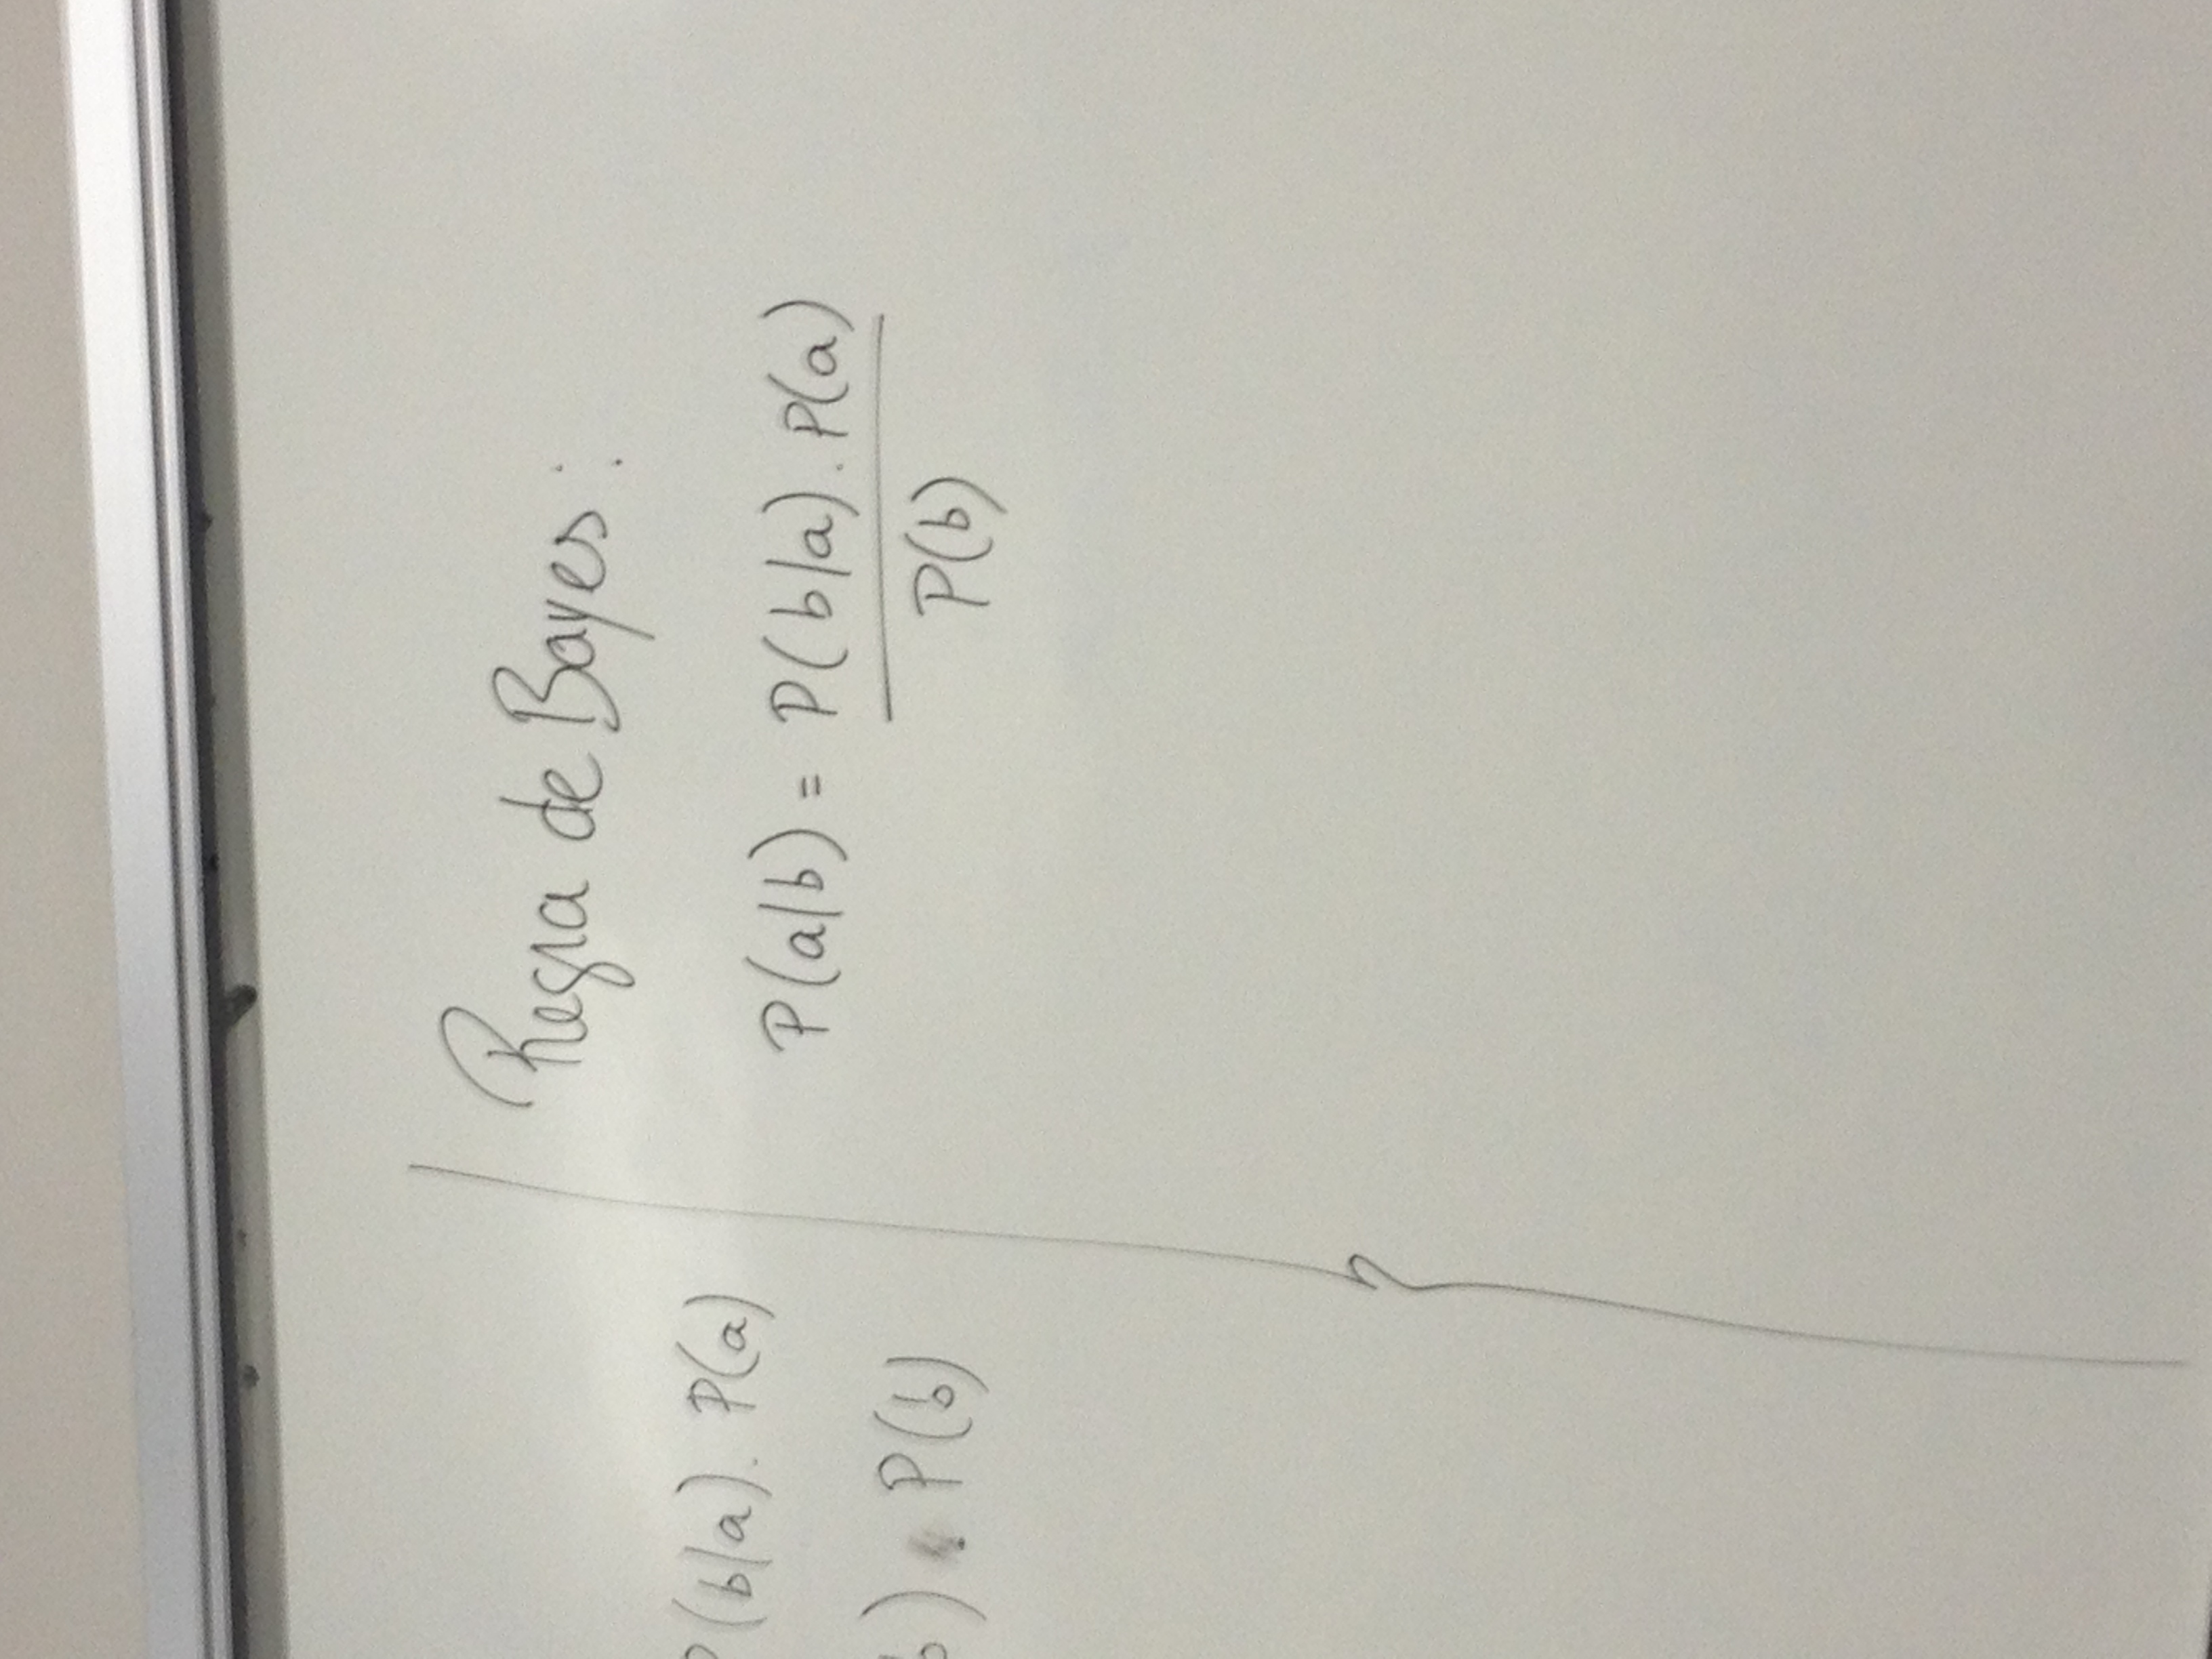 P(b/a). P(a)
b) . P(b)
Regra de Bayes:
P(a/b) = P(b/a). P(a)
P(b)